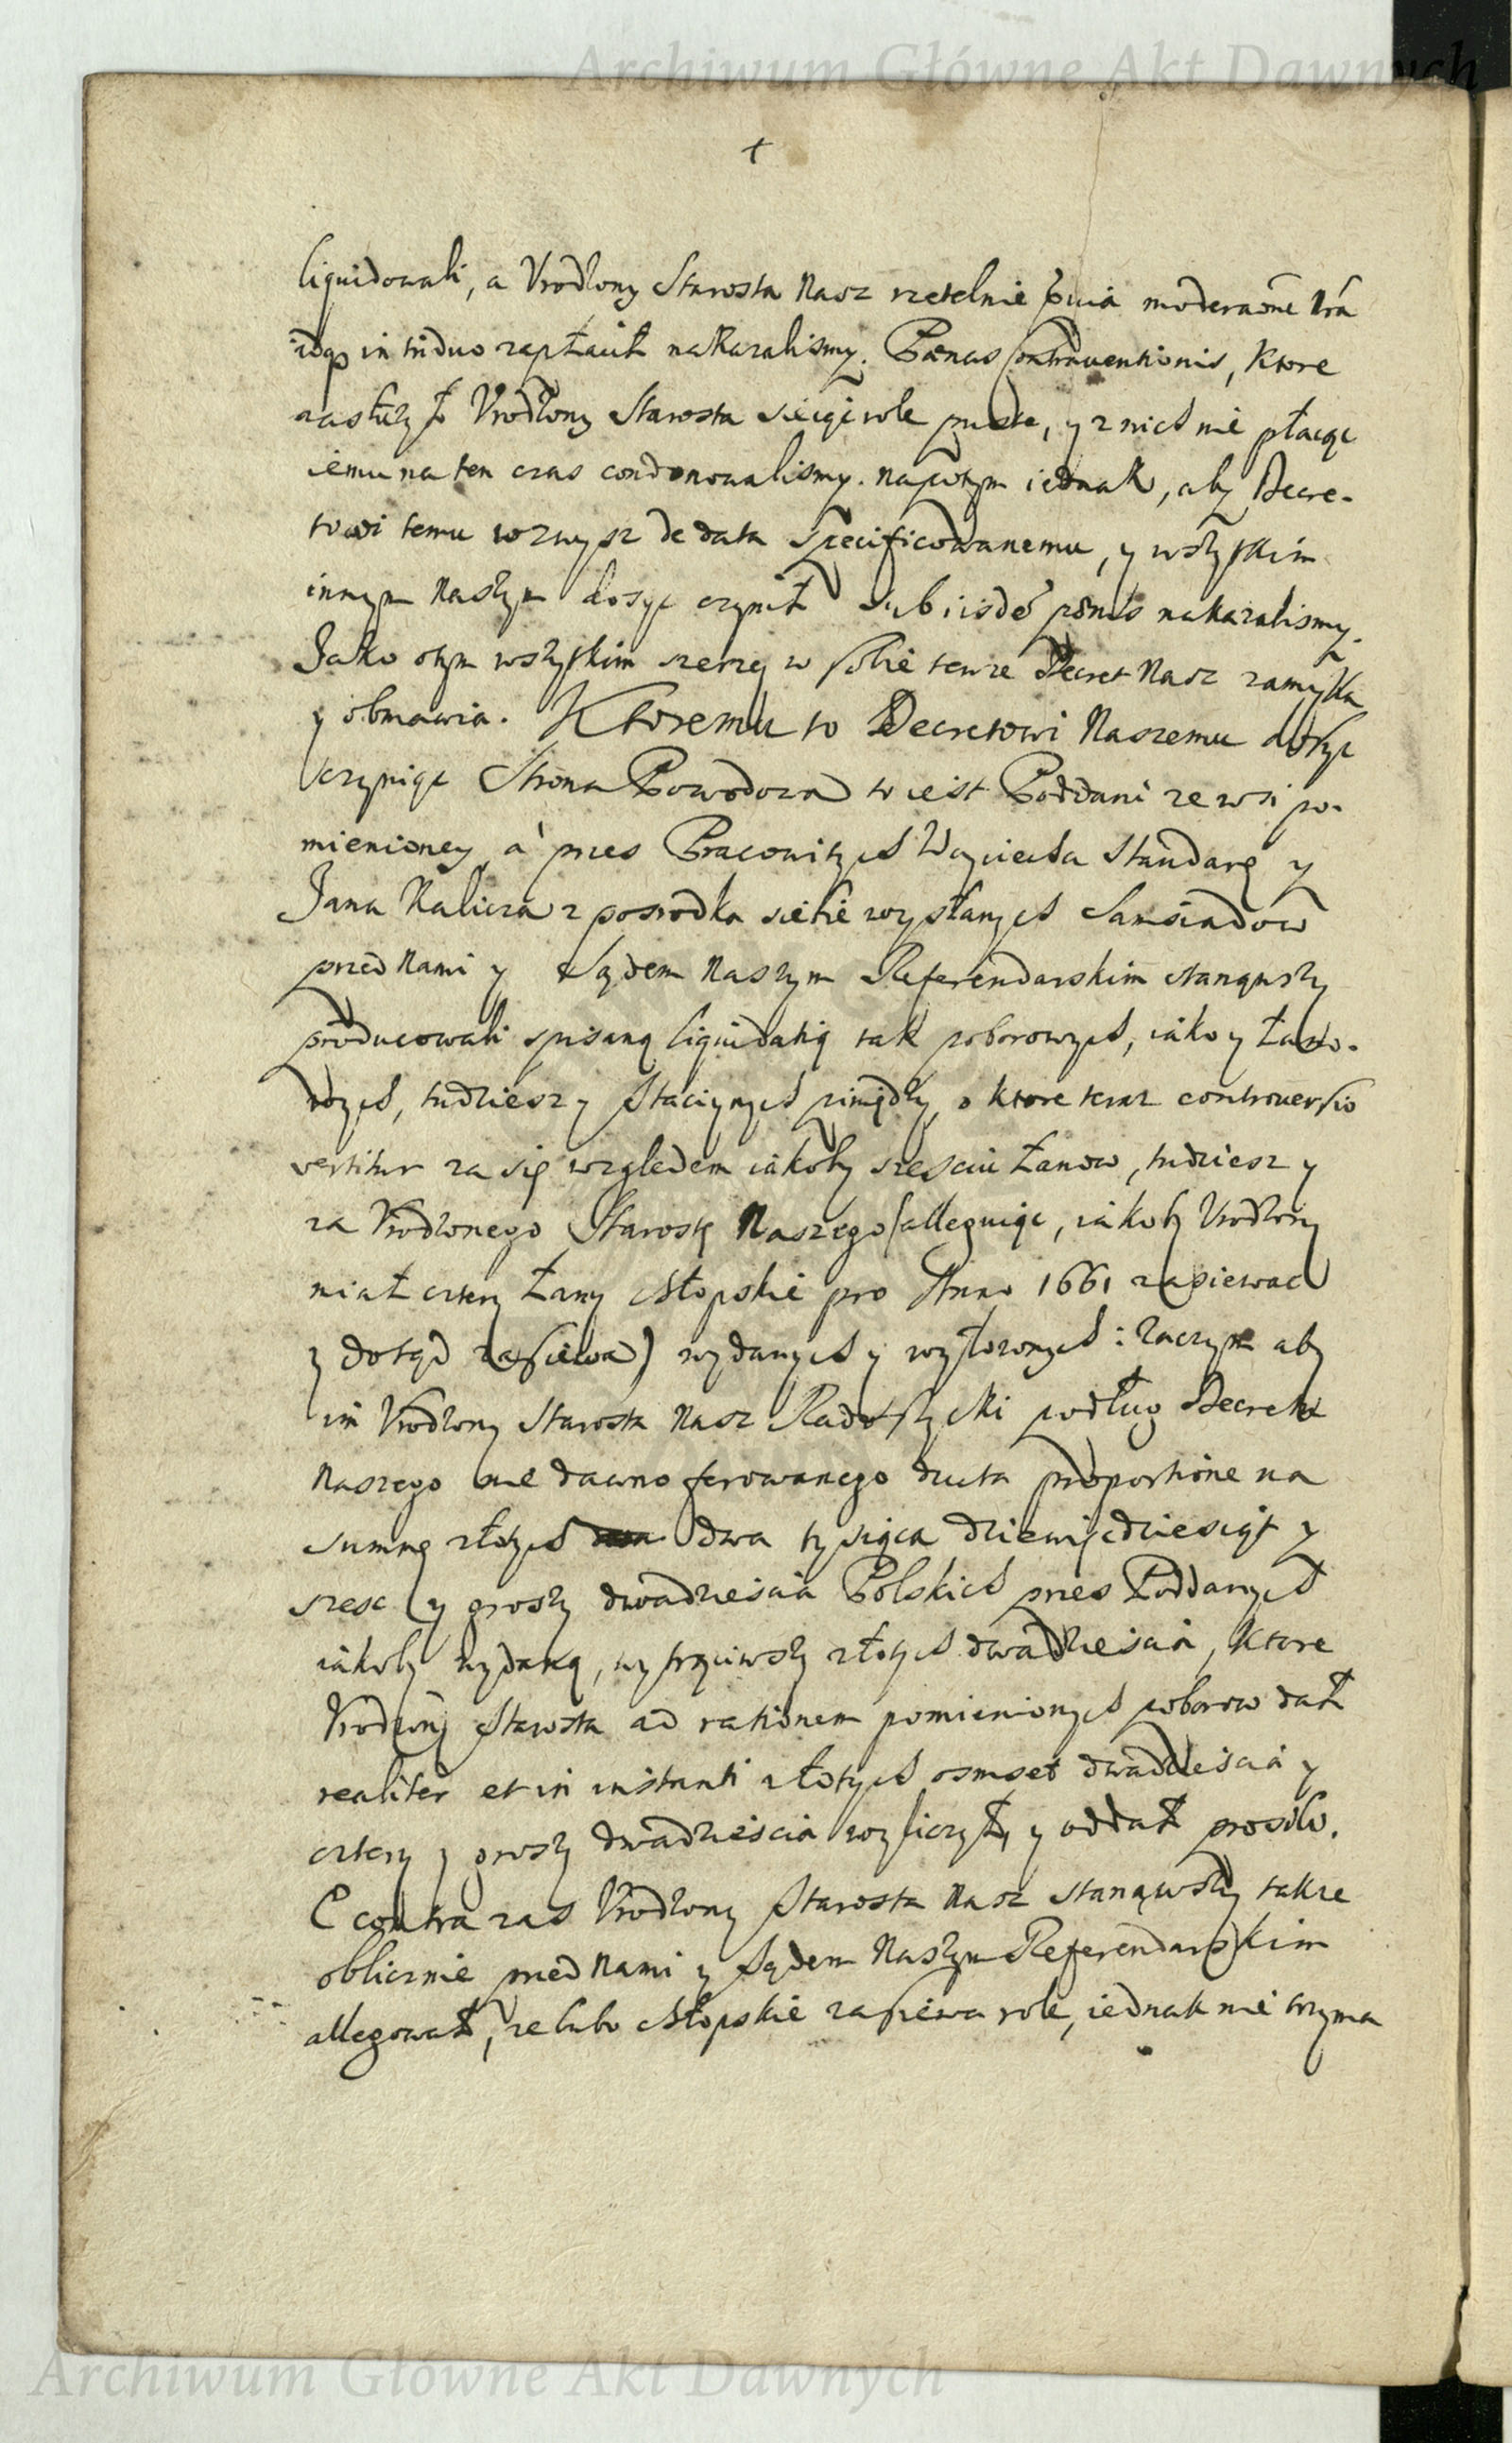 Archiwum Główne Akt Dawnych
+
liquidowali, a Vrodzony Starosta Nasz rzetelnie moderaõne
in triduo zapłacił nakazalismy. Pœnas contrauentionis, ktore
zasłuzÿł Vrodzony Starosta sieiąc role puste, y z nich nie płacąc
iemu na ten czas condonowalismy. napotym iednak, aby Decre-
towi temu wzwysz de data specificowanemu, y wszytkim
innym Naszym dosyc czynił sub iisdē pœnis nakazalismy.
Jako otym wszytkim szerzej w sobie tenze Decret Nasz zamyka
y obmawia. Ktoremu to Decretowi Naszemu dosyc
czyniąc Strona Powodowa to iest Poddani ze wsi po-
mienioney à przes Pracowitych Woyciecha Standarę y
Jana Kalicza z posrodka siebie wysłanych Samsiadow
przed Nami y Sądem Naszym Referendarskim stanąwszy
producowali spisaną liquidatią tak poborowych, iako y Łano-
wych, tudziesz y Stacijnych piniędzy, o ktore teraz controuersio
vertitur za się względem iakoby szesciu Łanow, tudziesz y
za Vrodzonego Starostę Naszego (alleguiąc, iakoby Vrodzony
miał cztery Łany chłopskie pro Anno 1661 zasiewac
y dotąd zasiewa) wydanych y wyłozonych: Zaczym aby
im Vrodzony Starosta Nasz Radoszycki podług Decretu
Naszego nie dawno ferowanego ducta proportione na
summę złotych dwa tysiąca dziewięcdziesiąt y
szesc y groszy dwadziescia Polskich przes Poddanych
iakoby wydaną, wytrąciwszy złotych dwadziescia, ktore
Vrodzony Starosta ad rationem pomienionych poborow dał
realiter et in instanti złotych osmset dwadziescia y
cztery y groszy dwadziescia wyliczył, y oddał prosiło.
E contra zas Vrodzony Starosta Nasz stanąwszy takze
oblicznie przed Nami y Sądem Naszym Referendarskim
allegował, ze lubo chłopskie zasiewa role, iednak nie trzyma
Archiwum Główne Akt Dawnych